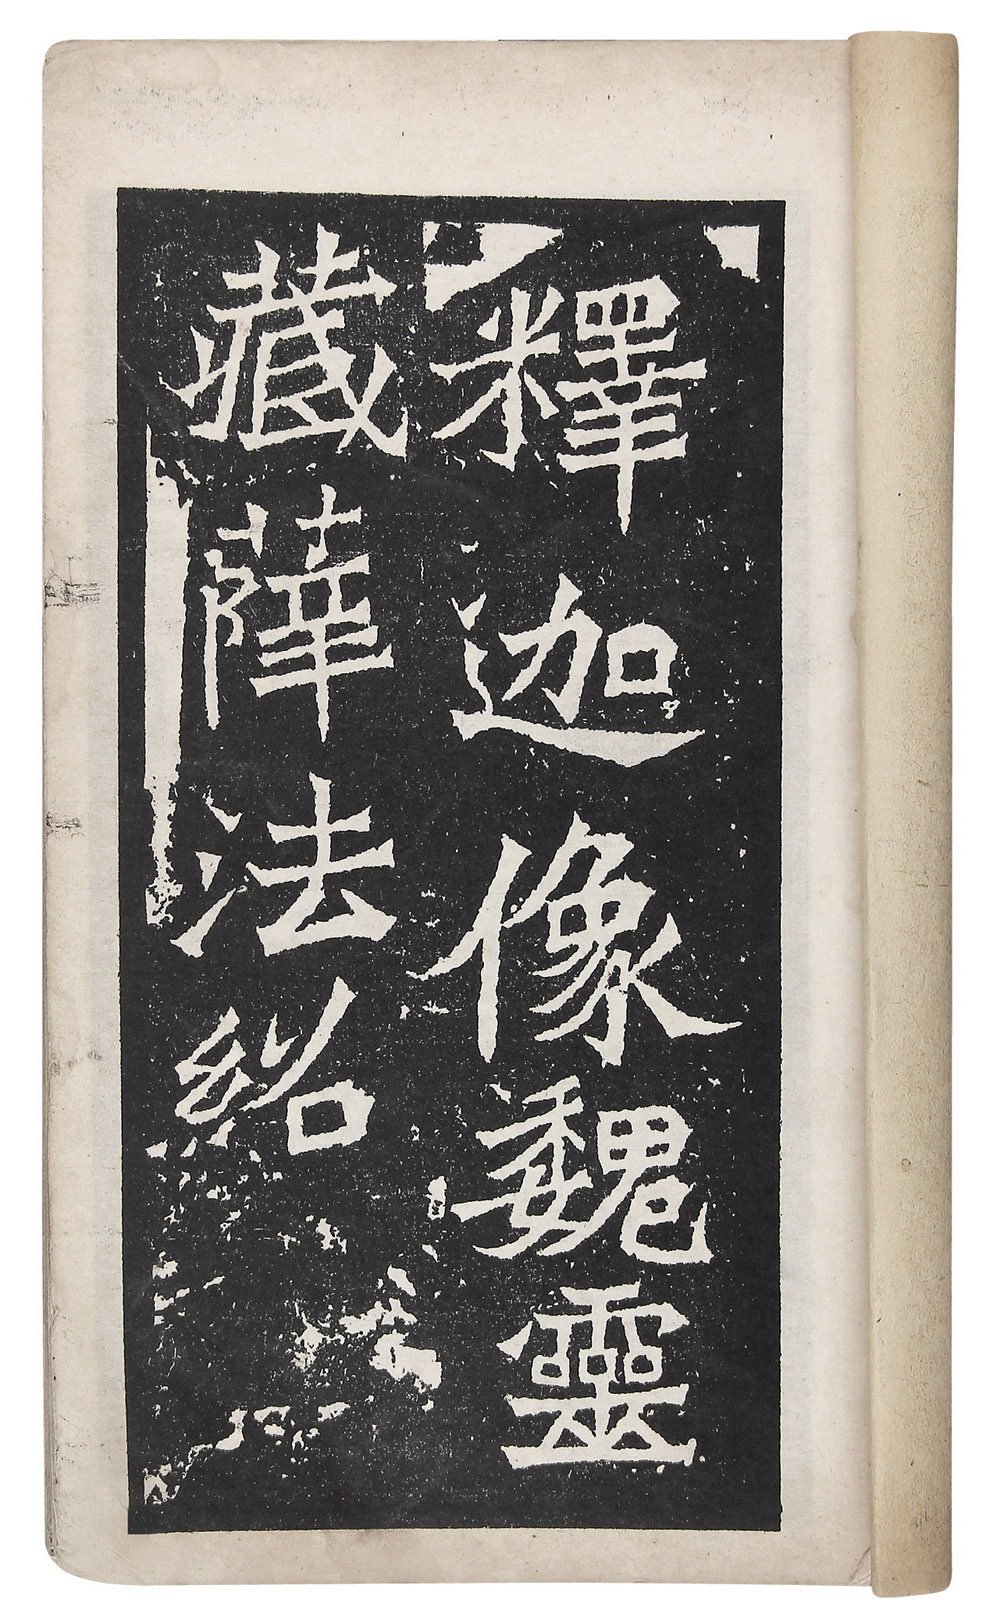 釋迦像魏靈
藏薛法紹